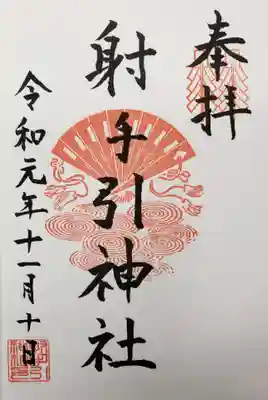 奉拝
射手引神社
令和元年十一月十日